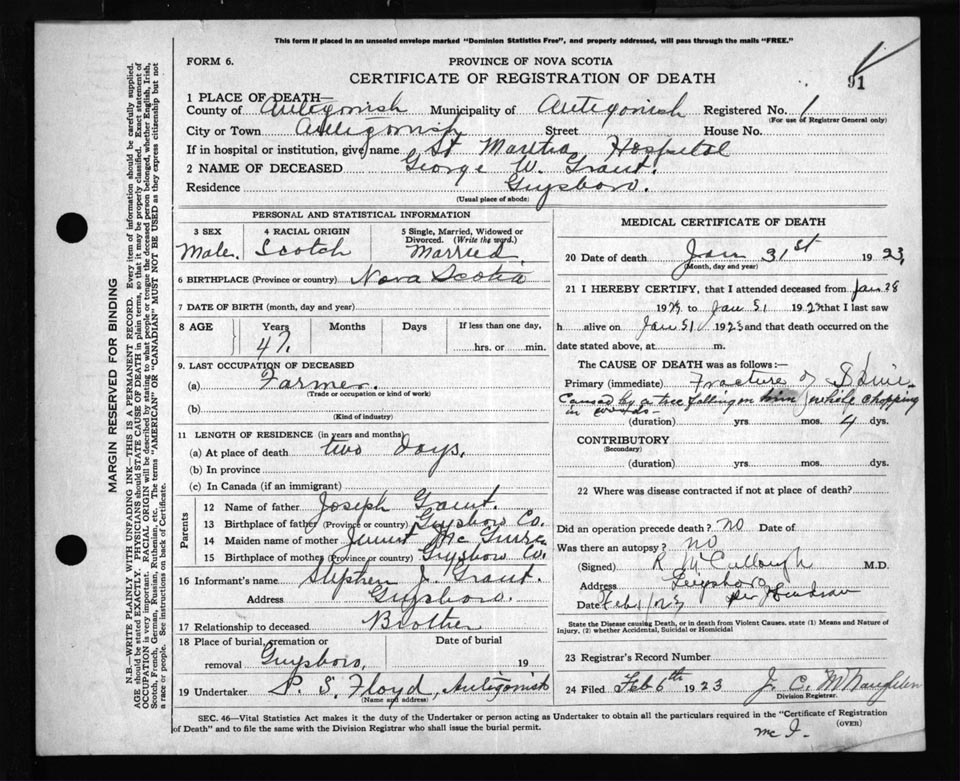 This form if placed in an unsealed envelope marked "Dominion Statistics Free", and properly addressed, will pass through the mails "FREE."
FORM 6.
PROVINCE OF NOVA SCOTIA
CERTIFICATE OF REGISTRATION OF DEATH
91
1 PLACE OF DEATH—
County of Antigonish Municipality of Antigonish Registered No. 1
(For use of Registrar General only)
City or Town Antigonish Street House No.
If in hospital or institution, give name St Martha Hospital
2 NAME OF DECEASED George W. Grant.
Residence Guysboro.
(Usual place of abode)
PERSONAL AND STATISTICAL INFORMATION
3 SEX 4 RACIAL ORIGIN 5 Single, Married, Widowed or Divorced. (Write the word.)
Male. Scotch Married.
6 BIRTHPLACE (Province or country) Nova Scotia
7 DATE OF BIRTH (month, day and year)
8 AGE Years Months Days If less than one day,
47. hrs. or min.
9. LAST OCCUPATION OF DECEASED
(a) Farmer.
(Trade or occupation or kind of work)
(b)
(Kind of industry)
11 LENGTH OF RESIDENCE (in years and months)
(a) At place of death two days.
(b) In province
(c) In Canada (if an immigrant)
Parents
12 Name of father Joseph Grant.
13 Birthplace of father (Province or country) Guysboro Co.
14 Maiden name of mother
15 Birthplace of mother (Province or country) Guysboro Co.
16 Informant's name Stephen J. Grant.
Address Guysboro.
17 Relationship to deceased Brother
18 Place of burial, cremation or removal Guysboro. Date of burial 19
19 Undertaker P. S. Floyd, Antigonish
(Name and address)
MEDICAL CERTIFICATE OF DEATH
20 Date of death Jan 31st 1923,
(Month, day and year)
21 I HEREBY CERTIFY, that I attended deceased from Jan 28
1923 to Jan 31 1923 that I last saw
h alive on Jan 31 1923 and that death occurred on
date stated above, at m.
The CAUSE OF DEATH was as follows:
Primary (immediate) Fracture of Spine.
Caused by a tree falling on him while chopping
in woods
(duration) yrs. mos. 4 dys.
CONTRIBUTORY
(Secondary)
(duration) yrs. mos. dys.
22 Where was disease contracted if not at place of death?
Did an operation precede death? No Date of
Was there an autopsy? No
(Signed) R McCullough M.D.
Address Guysboro
Date Feb 1/23 per
State the Disease causing Death, or in death from Violent Causes, state (1) Means and Nature of Injury, (2) whether Accidental, Suicidal or Homicidal
23 Registrar's Record Number
24 Filed Feb 6th 1923 J. C. McNaughton
Division Registrar.
SEC. 46—Vital Statistics Act makes it the duty of the Undertaker or person acting as Undertaker to obtain all the particulars required in the "Certificate of Registration
of Death" and to file the same with the Division Registrar who shall issue the burial permit.
(OVER)
MARGIN RESERVED FOR BINDING
N.B.—WRITE PLAINLY WITH UNFADING INK—THIS IS A PERMANENT RECORD. Every item of information should be carefully supplied.
AGE should be stated EXACTLY. PHYSICIANS should STATE CAUSE OF DEATH in plain terms, so that it may be properly classified. Exact statement of
OCCUPATION is very important. RACIAL ORIGIN will be described by stating to what people or tongue the deceased person belonged, whether English, Irish,
Scotch, French, German, Russian, Ruthenian, etc. The terms "AMERICAN" OR "CANADIAN" MUST NOT BE USED as they express citizenship but not
a race or people. See instructions on back of Certificate.